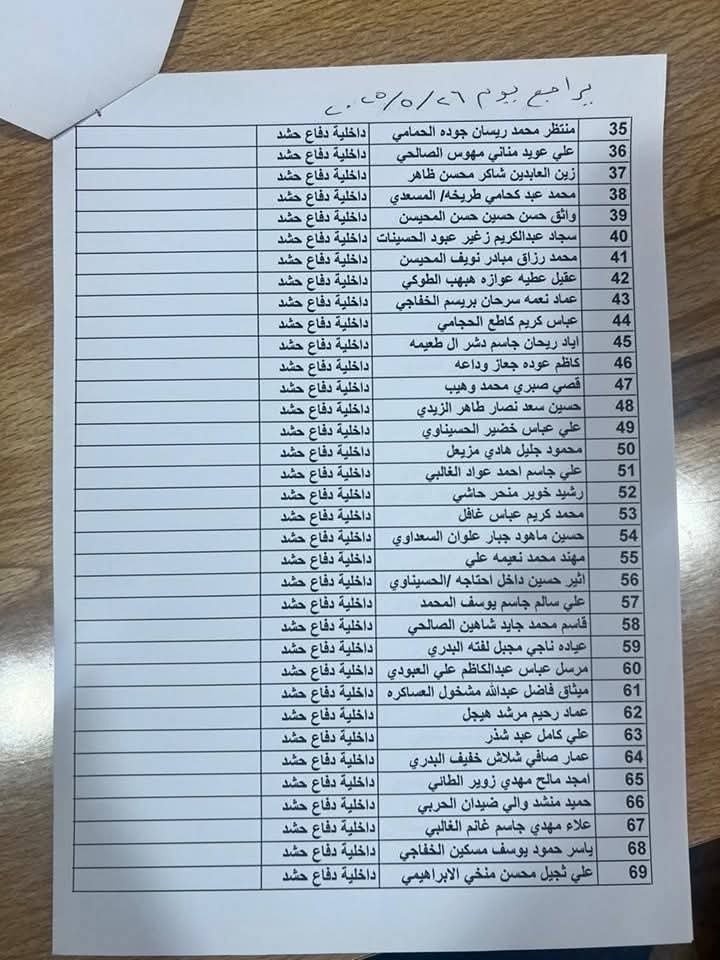 يراجع يوم ٢٠٢٥/٥/٢٦
35 منتظر محمد ريسان جوده الحمامي داخلية دفاع حشد
36 علي عويد مناني مهوس الصالحي داخلية دفاع حشد
37 زين العابدين شاكر محسن ظاهر داخلية دفاع حشد
38 محمد عبد كحامي طريخه/ المسعدي داخلية دفاع حشد
39 واثق حسن حسين حسن المحيسن داخلية دفاع حشد
40 سجاد عبدالكريم زغير عبود الحسينات داخلية دفاع حشد
41 محمد رزاق مبادر نويف المحيسن داخلية دفاع حشد
42 عقيل عطيه عوازه هبهب الطوكي داخلية دفاع حشد
43 عماد نعمه سرحان بريسم الخفاجي داخلية دفاع حشد
44 عباس كريم كاطع الحجامي داخلية دفاع حشد
45 اياد ريحان جاسم دشر ال طعيمه داخلية دفاع حشد
46 كاظم عوده جعاز وداعه داخلية دفاع حشد
47 قصي صبري محمد وهيب داخلية دفاع حشد
48 حسين سعد نصار طاهر الزيدي داخلية دفاع حشد
49 علي عباس خضير الحسيناوي داخلية دفاع حشد
50 محمود جليل هادي مزيعل داخلية دفاع حشد
51 علي جاسم احمد عواد الغالبي داخلية دفاع حشد
52 رشيد خوير منحر حاشي داخلية دفاع حشد
53 محمد كريم عباس غافل داخلية دفاع حشد
54 حسين ماهود جبار علوان السعداوي داخلية دفاع حشد
55 مهند محمد نعيمه علي داخلية دفاع حشد
56 اثير حسين داخل احتاجه /الحسيناوي داخلية دفاع حشد
57 علي سالم جاسم يوسف المحمد داخلية دفاع حشد
58 قاسم محمد جايد شاهين الصالحي داخلية دفاع حشد
59 عياده ناجي مجبل لفته البدري داخلية دفاع حشد
60 مرسل عباس عبدالكاظم علي العبودي داخلية دفاع حشد
61 ميثاق فاضل عبدالله مشخول العساكره داخلية دفاع حشد
62 عماد رحيم مرشد هيجل داخلية دفاع حشد
63 علي كامل عبد شذر داخلية دفاع حشد
64 عمار صافي شلاش خفيف البدري داخلية دفاع حشد
65 امجد مالح مهدي زوير الطائي داخلية دفاع حشد
66 حميد منشد والي ضيدان الحربي داخلية دفاع حشد
67 علاء مهدي جاسم غانم الغالبي داخلية دفاع حشد
68 ياسر حمود يوسف مسكين الخفاجي داخلية دفاع حشد
69 علي ثجيل محسن منخي الابراهيمي داخلية دفاع حشد